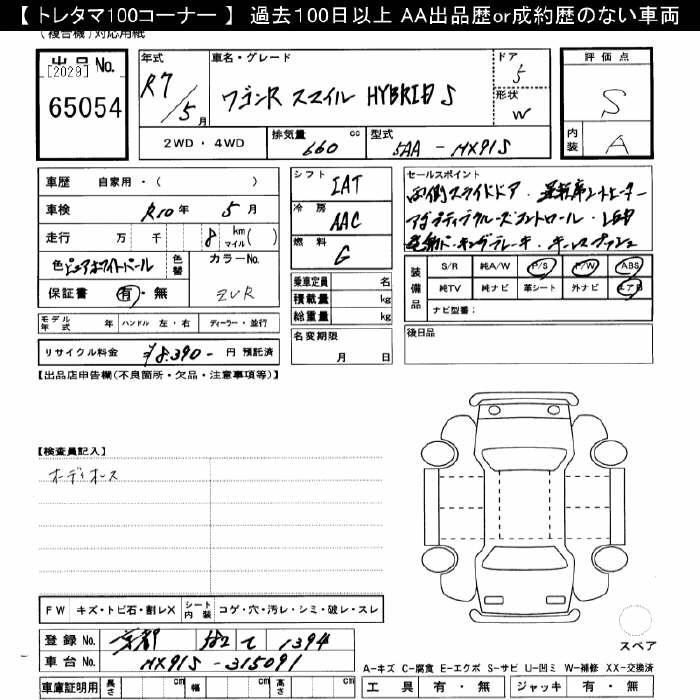 【 トレタマ100コーナー 】 過去100日以上 AA出品歴or成約歴のない車両
(複合機)対応用紙
出品No.
[2029]
65054
年式
R7/5月
車名・グレード
ワゴンR スマイル HYBRID S
ドア
5
形状
W
2WD・4WD
排気量
660 cc
型式
5AA-MX91S
評価点
S
内装
A
車歴 自家用・( )
車検 R10年 5月
走行 万 千 8 km マイル( )
色 ピュアホワイトパール
色替
カラーNo.
ZVR
保証書 有・無
モデル年式 年 ハンドル 左・右 ディーラー・並行
リサイクル料金 ¥8,390- 円 預託済
シフト
IAT
冷房
AAC
燃料
G
乗車定員 名
積載量 kg
総重量 kg
名変期限
月 日
セールスポイント
両側スライドドア・運転席シートヒーター
アダプティブクルーズコントロール・LED
電動パーキングブレーキ・キーレスプッシュ
装備品
S/R 純A/W P/S P/W ABS
純TV 純ナビ 革シート 外ナビ エアB
ナビ型番:
後日品
【出品店申告欄(不良箇所・欠品・注意事項等)】
【検査員記入】
オーディオレス
FW キズ・トビ石・割レX
シート内装 コゲ・穴・汚レ・シミ・破レ・スレ
登録No. 京都 て 1394
車台No. MX91S-315091
車庫証明用 長さ cm 幅 cm 高さ cm
スペア
A-キズ C-腐食 E-エクボ S-サビ U-凹ミ W-補修 XX-交換済
工具 有・無 ジャッキ 有・無